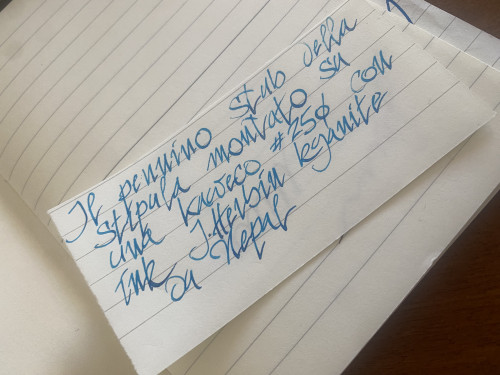 Il pennino stub della
Stipula montato su
una Kaweco #250 con
Ink J.Herbin kyanite
du Népal